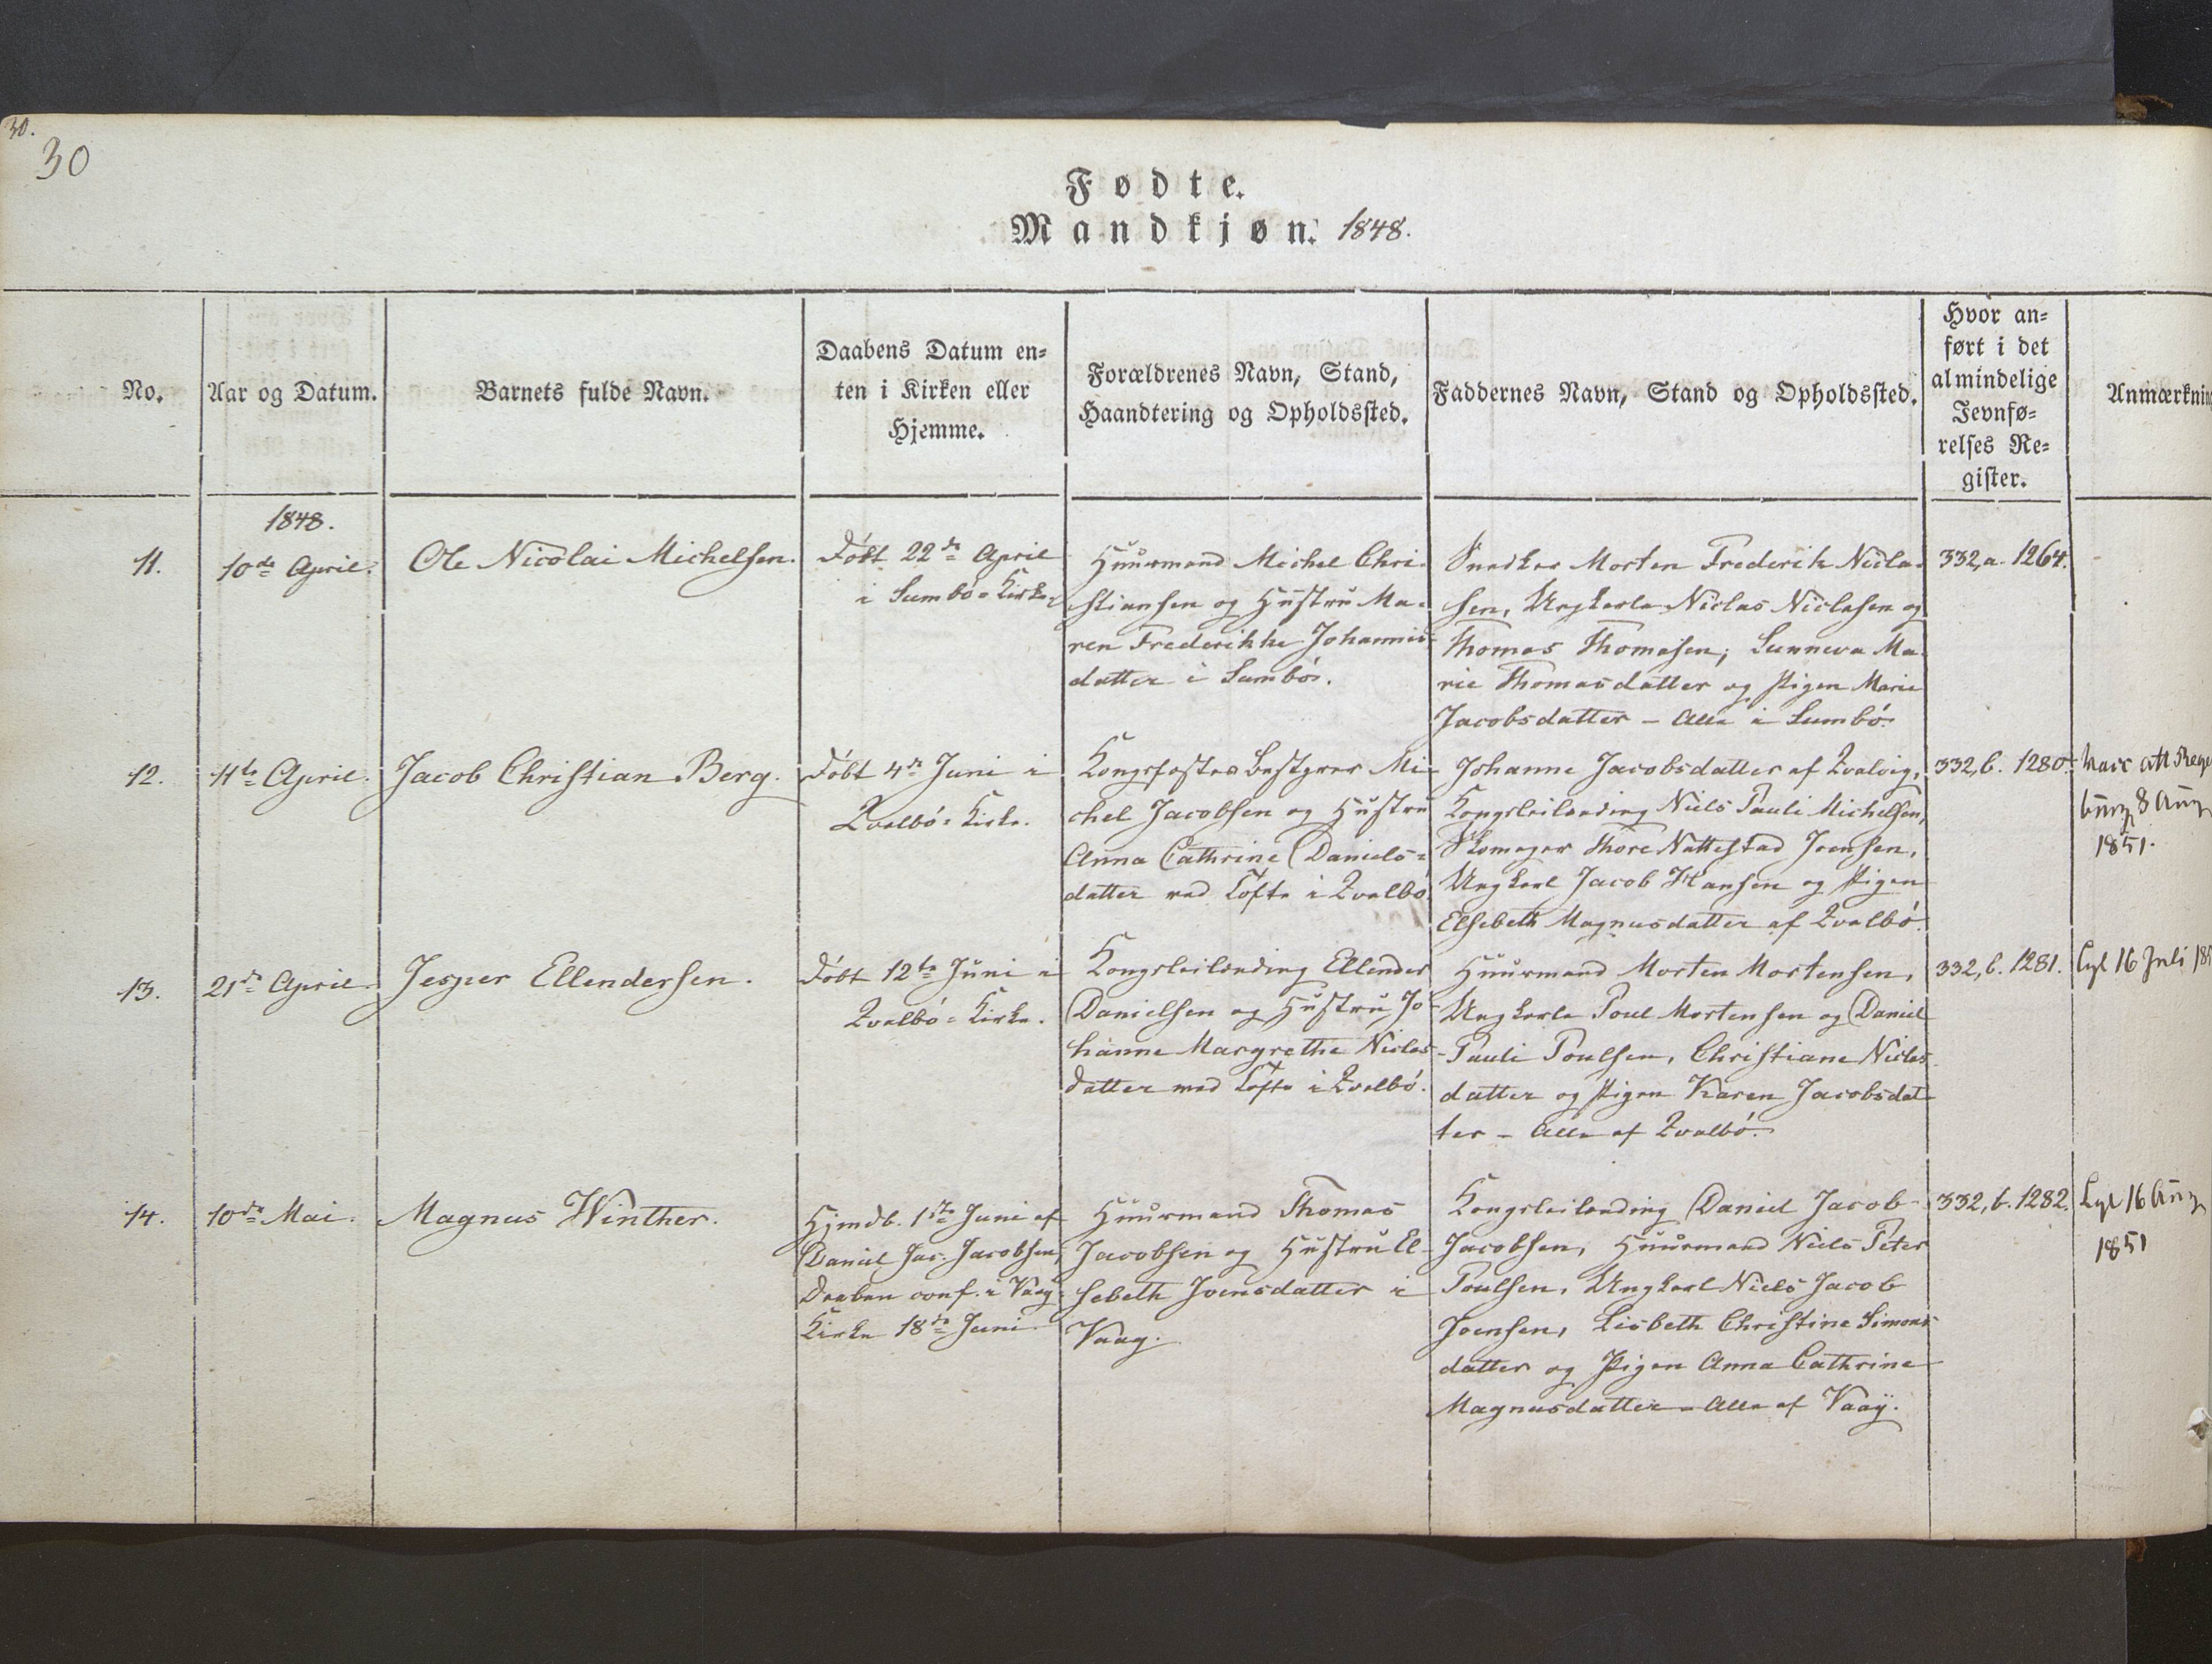 30.
30
Fødte.
Mandkjøn. 1848.
No.
Aar og Datum.
Barnets fulde Navn.
Daabens Datum en-
ten i Kirken eller
Hjemme.
Forældrenes Navn, Stand,
Haandtering og Opholdssted.
Faddernes Navn, Stand og Opholdssted.
Hvor an-
ført i det
almindelige
Jevnfø-
relses Re-
gister.
Anmærknin
1848.
11.
10de April.
Ole Nicolai Michelsen.
Døbt 22de April
i Sumbö-Kirke.
Huusmand Michel Chri-
stiansen og Hustru Ma-
ren Frederikke Johannis-
datter i Sumbö.
Snedker Morten Frederik Nicla-
sen, Ungkarle Niclas Niclasen og
Thomas Thomasen; Sunneva Ma-
rie Thomasdatter og Pigen Marie
Jacobsdatter - Alle i Sumbö.
332,a. 1264.
12.
11te April.
Jacob Christian Berg.
Döbt 4de Juni i
Qvalbö-Kirke.
Kongsfæstes Bestyrer Mi-
chel Jacobsen og Hustru
Anna Cathrine Daniels-
datter ved Tofte i Qvalbö.
Johanne Jacobsdatter af Qvalvig,
Kongsleilænding Niels Pauli Michelsen,
Skomager Thore Nattestad Joensen,
Ungkarl Jacob Hansen og Pigen
Elsebeth Magnusdatter af Qvalbö.
332,b. 1280.
Vacc att
8 Aug
1851.
13.
21de April.
Jesper Ellendersen.
Döbt 12te Juni i
Qvalbö-Kirke.
Kongsleilænding Ellender
Danielsen og Hustru Jo-
hanne Margrethe Niclas-
datter ved Tofte i Qvalbö.
Huusmand Morten Mortensen,
Ungkarle Poul Mortensen og Daniel
Pauli Poulsen, Christiane Niclas-
datter og Pigen Karen Jacobsdat-
ter - Alle af Qvalbö.
332,b. 1281.
16 Juli 18
14.
10de Mai.
Magnus Winther.
Hjmdb. 1ste Juni af
Daniel Jac. Jacobsen,
Daaben conf. i Vaag-
Kirke 18de Juni.
Huusmand Thomas
Jacobsen og Hustru El-
sebeth Joensdatter i
Vaag.
Kongsleilænding Daniel Jacob
Jacobsen, Huusmand Niels Peter
Poulsen, Ungkarl Niels Jacob
Joensen, Lisbeth Christine Simons-
datter og Pigen Anna Cathrine
Magnusdatter - Alle af Vaag.
332,b. 1282.
16 Aug
1851